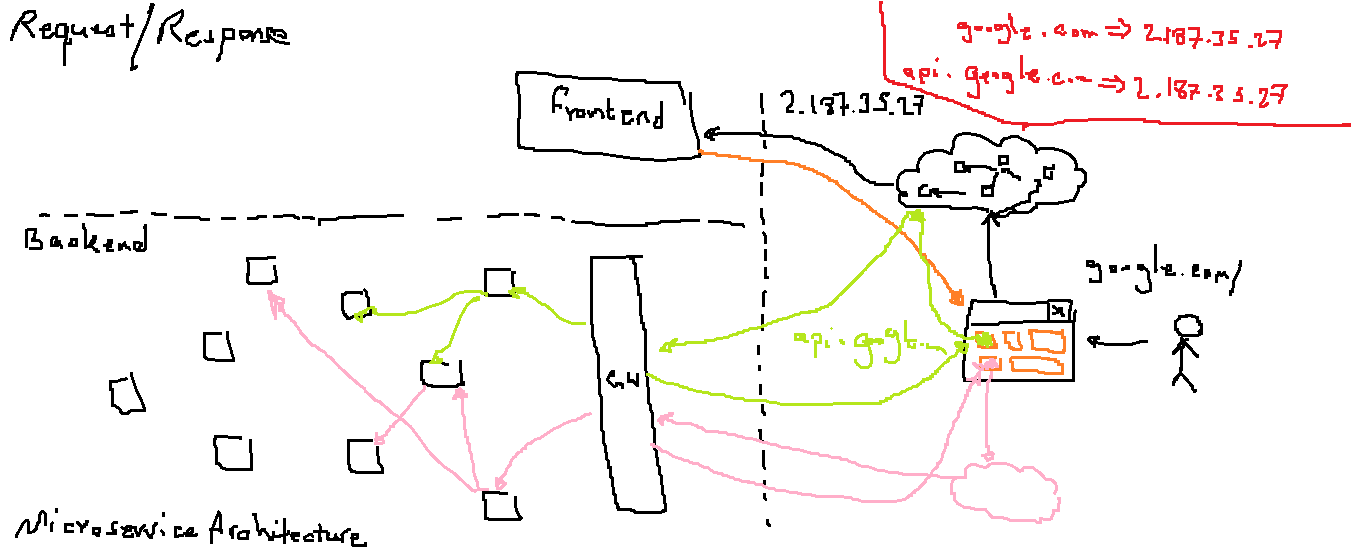 Request/Response
google.com => 2.187.35.27
api.google.com => 2.187.35.27
Frontend
2.187.35.27
Backend
google.com/
x
api.google.
GW
Microservice Architecture